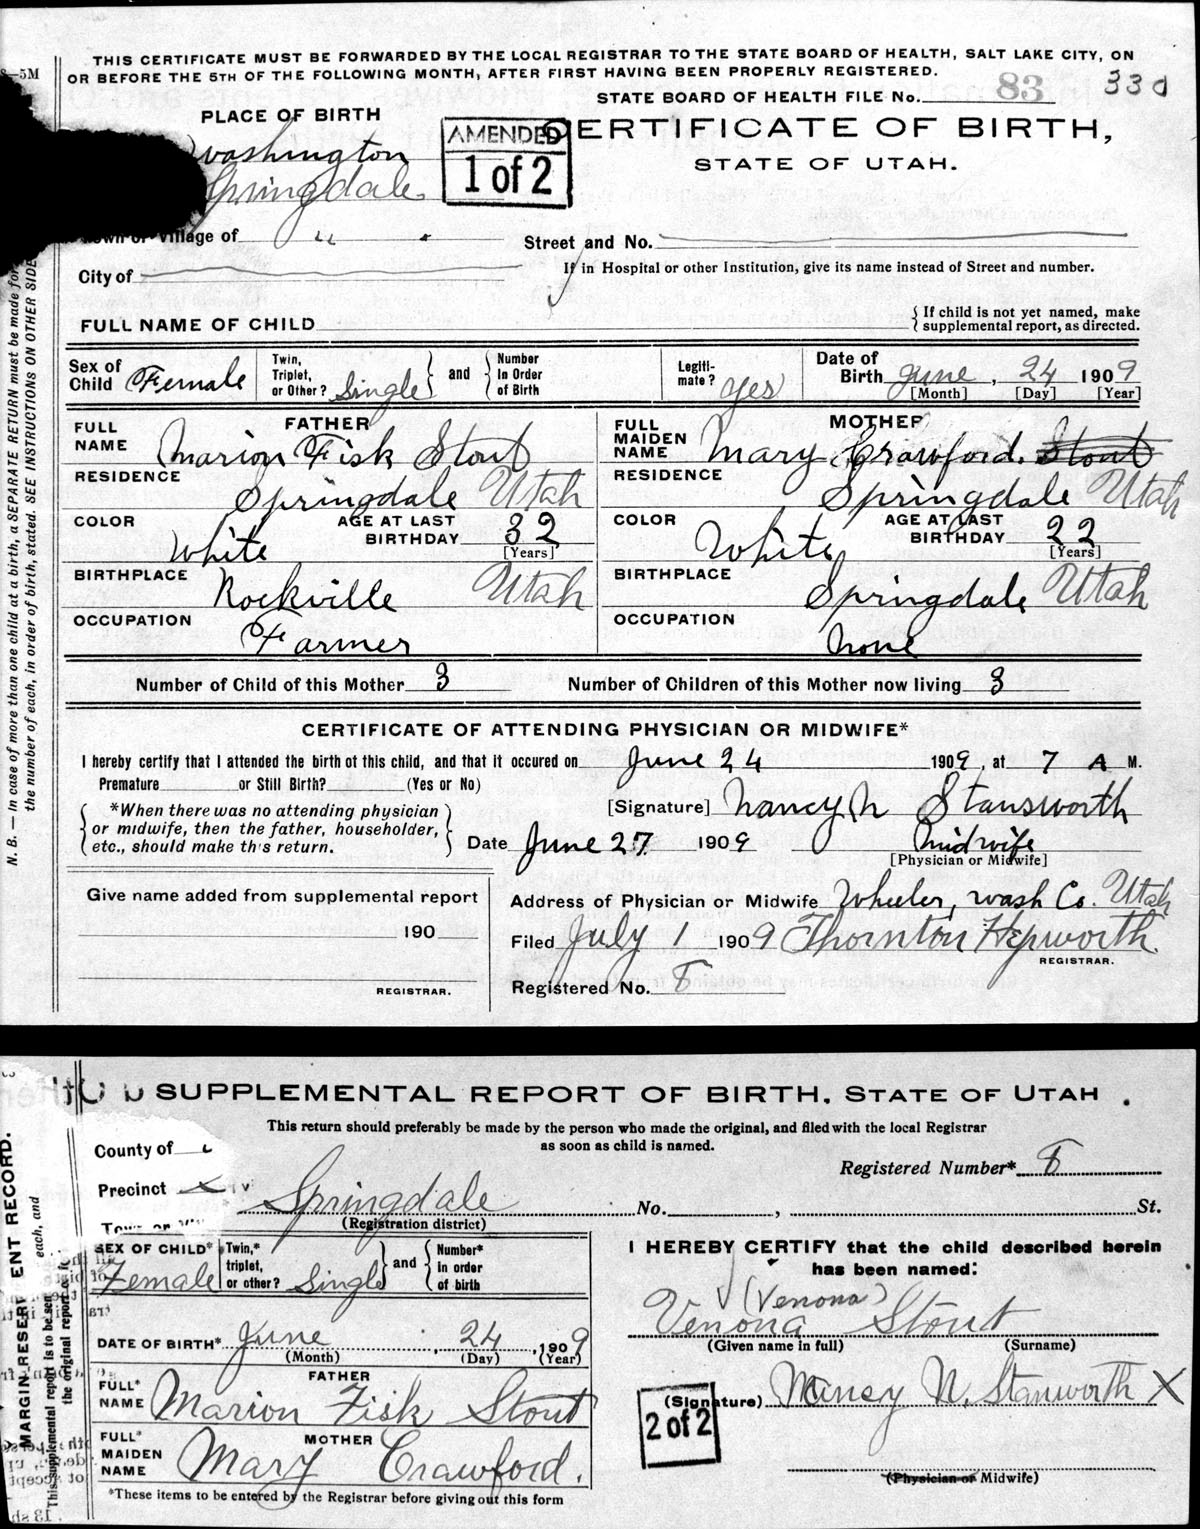 THIS CERTIFICATE MUST BE FORWARDED BY THE LOCAL REGISTRAR TO THE STATE BOARD OF HEALTH, SALT LAKE CITY, ON
OR BEFORE THE 5TH OF THE FOLLOWING MONTH, AFTER FIRST HAVING BEEN PROPERLY REGISTERED.
8—5M
STATE BOARD OF HEALTH FILE No. 83 330
PLACE OF BIRTH
AMENDED
1 of 2
CERTIFICATE OF BIRTH,
STATE OF UTAH.
Washington
Springdale
Town or Village of " .
Street and No.
City of
If in Hospital or other Institution, give its name instead of Street and number.
FULL NAME OF CHILD
{ If child is not yet named, make
supplemental report, as directed.
Sex of Child Female
Twin, Triplet, or Other? Single } and { Number In Order of Birth
Legiti-mate? Yes
Date of Birth June, 24 1909
[Month] [Day] [Year]
FATHER
FULL NAME Marion Fisk Stout
RESIDENCE Springdale Utah
COLOR White AGE AT LAST BIRTHDAY 32
[Years]
BIRTHPLACE Rockville Utah
OCCUPATION Farmer
MOTHER
FULL MAIDEN NAME Mary Crawford. Stout
RESIDENCE Springdale Utah
COLOR White AGE AT LAST BIRTHDAY 22
[Years]
BIRTHPLACE Springdale Utah
OCCUPATION None
Number of Child of this Mother 3 Number of Children of this Mother now living 3
CERTIFICATE OF ATTENDING PHYSICIAN OR MIDWIFE*
I hereby certify that I attended the birth of this child, and that it occured on June 24 1909, at 7 A M.
Premature or Still Birth? (Yes or No)
{ *When there was no attending physician
or midwife, then the father, householder,
etc., should make th's return. }
[Signature] Nancy N Stansworth
Date June 27 1909 Midwife
[Physician or Midwife]
Give name added from supplemental report
190
REGISTRAR.
Address of Physician or Midwife Wheeler, Wash Co. Utah
Filed July 1 1909 Thornton Hepworth
REGISTRAR.
Registered No. 8
N. B. — In case of more than one child at a birth, a SEPARATE RETURN must be made for
the number of each, in order of birth, stated. SEE INSTRUCTIONS ON OTHER SIDE
SUPPLEMENTAL REPORT OF BIRTH, STATE OF UTAH .
This return should preferably be made by the person who made the original, and filed with the local Registrar
as soon as child is named.
County of
Registered Number* 8
Precinct
Springdale
(Registration district)
No. , St.
SEX OF CHILD* Female
Twin,* triplet, or other? Single } and { Number* in order of birth
DATE OF BIRTH* June, 24, 1909
(Month) (Day) (Year)
FATHER
FULL* NAME Marion Fisk Stout
MOTHER
FULL* MAIDEN NAME Mary Crawford.
*These items to be entered by the Registrar before giving out this form
I HEREBY CERTIFY that the child described herein
has been named:
(Venona)
Venona Stout
(Given name in full) (Surname)
(Signature) Nancy N. Stanworth X
2 of 2
(Physician or Midwife)
MARGIN RESERV
ENT RECORD.
This supplemental report is to be sen
each, and
the original report